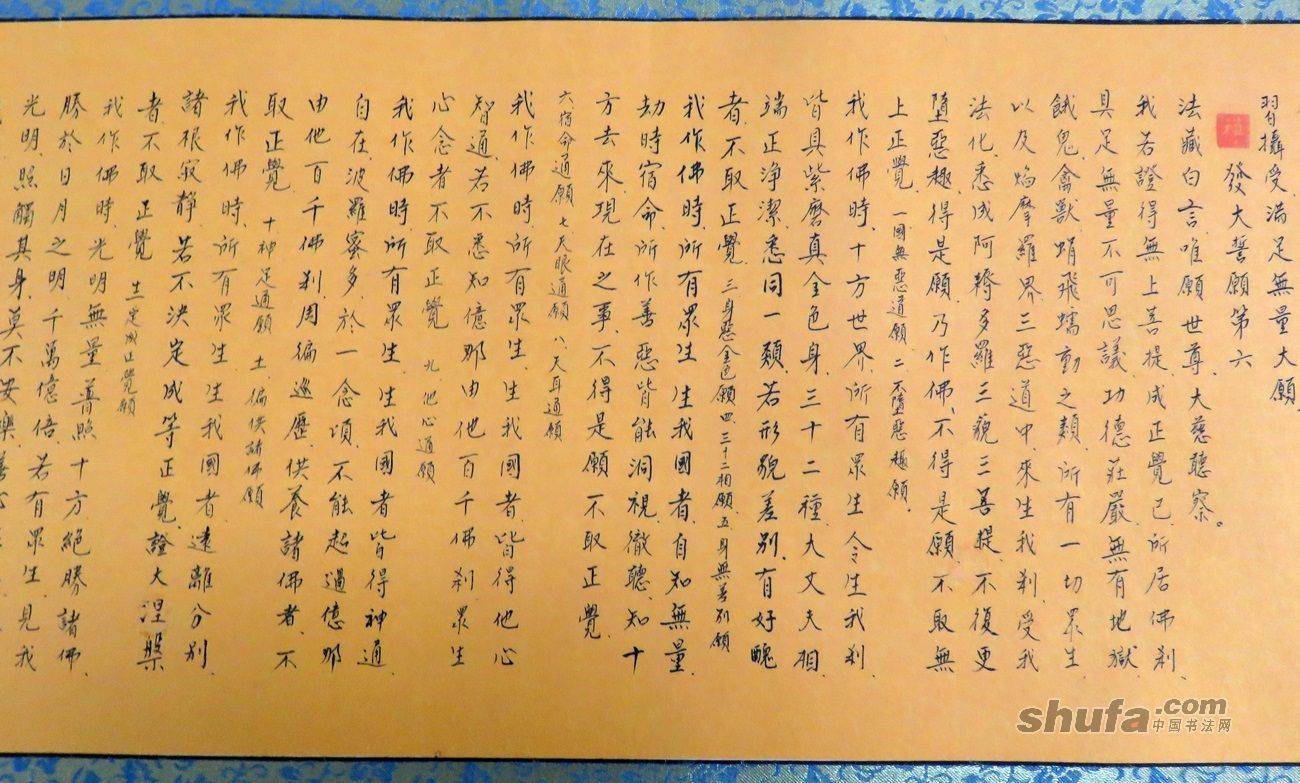 習攝受、滿足無量大願、
發大誓願第六
法藏白言、唯願世尊、大慈聽察。
我若證得無上菩提、成正覺已、所居佛剎、
具足無量不可思議、功德莊嚴、無有地獄、
餓鬼、禽獸、蜎飛蠕動之類、所有一切眾生、
以及焰摩羅界、三惡道中、來生我剎、受我
法化、悉成阿耨多羅三藐三菩提、不復更
墮惡趣、得是願、乃作佛、不得是願、不取無
上正覺、一國無惡道願、二不墮惡趣願、
我作佛時、十方世界、所有眾生、令生我剎、
皆具紫磨真金色身、三十二種、大丈夫相、
端正淨潔、悉同一類、若形貌差別、有好醜
者、不取正覺、三身悉金色願、四、三十二相願、五、身無差別願
我作佛時、所有眾生、生我國者、自知無量
劫時宿命、所作善惡、皆能洞視、徹聽、知十
方去來、現在之事、不得是願、不取正覺、
六宿命通願、七天眼通願、八天耳通願
我作佛時、所有眾生、生我國者、皆得他心
智通、若不悉知億那由他百千佛剎、眾生
心念者、不取正覺、九、他心通願、
我作佛時、所有眾生、生我國者、皆得神通
自在、波羅蜜多、於一念頃、不能超過億那
由他百千佛剎、周徧巡歷、供養諸佛者、不
取正覺、十神足通願、十一、徧供諸佛願
我作佛時、所有眾生、生我國者、遠離分別、
諸根寂靜、若不決定成等正覺、證大涅槃
者、不取正覺、十二定成正覺願
我作佛時、光明無量、普照十方、絕勝諸佛、
勝於日月之明、千萬億倍、若有眾生、見我
光明、照觸其身、莫不安樂、
shufa.com
中国书法网